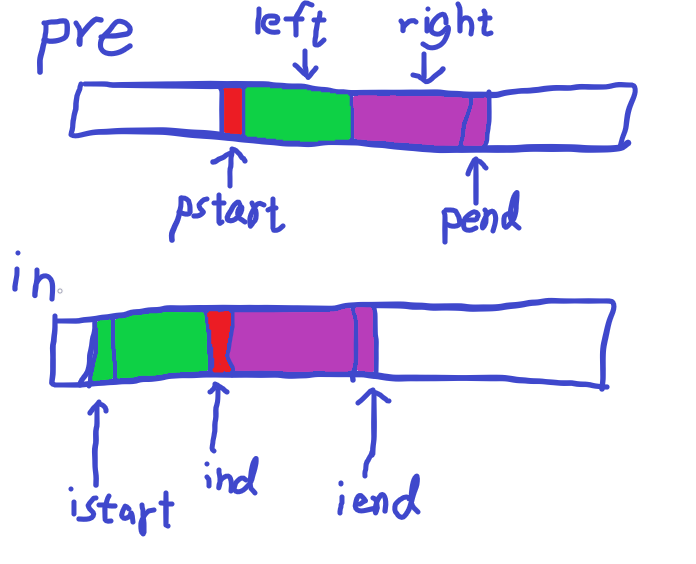 pre
left right
pstart
pend
in
istart
ind
iend